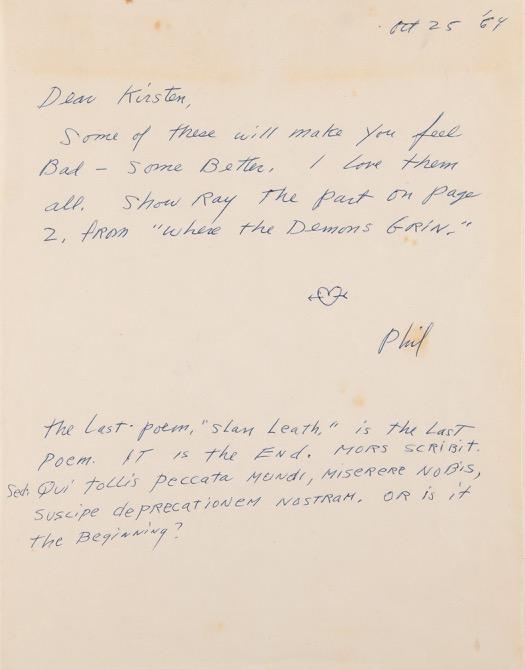 Oct 25 '64
Dear Kirsten,
Some of these will make you feel
Bad - Some Better. I love them
all. Show Ray the part on page
2, from "Where the Demons Grin."
Phil
the last poem, "Slan Leath," is the last
poem. IT is the End. MORS SCRIBIT.
Sed: Qui tollis peccata MUNDI, MISERERE NOBIS,
SUSCIPE dePRECATIONEM NOSTRAM. OR is it
the Beginning?